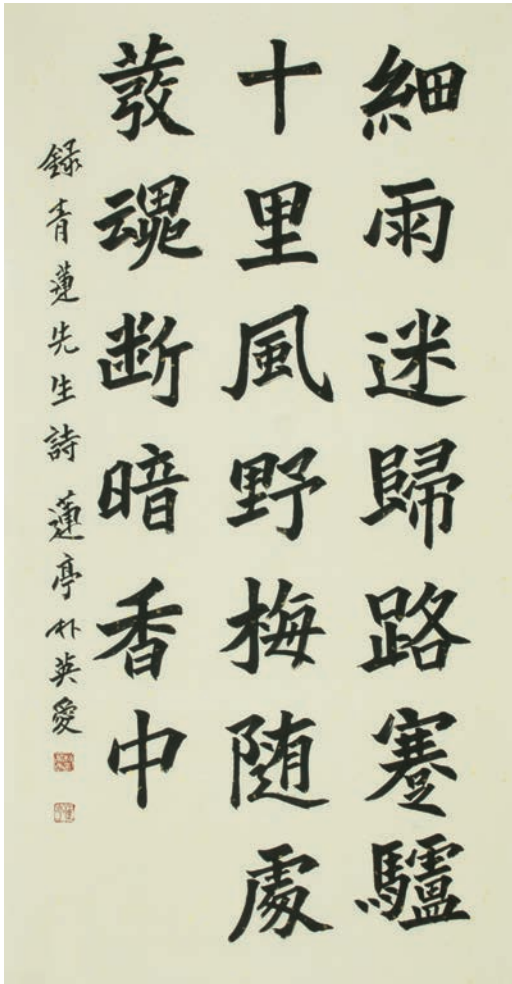 細雨迷歸路蹇驢
十里風野梅随處
發魂断暗香中
錄青蓮先生詩 蓮亭朴英愛